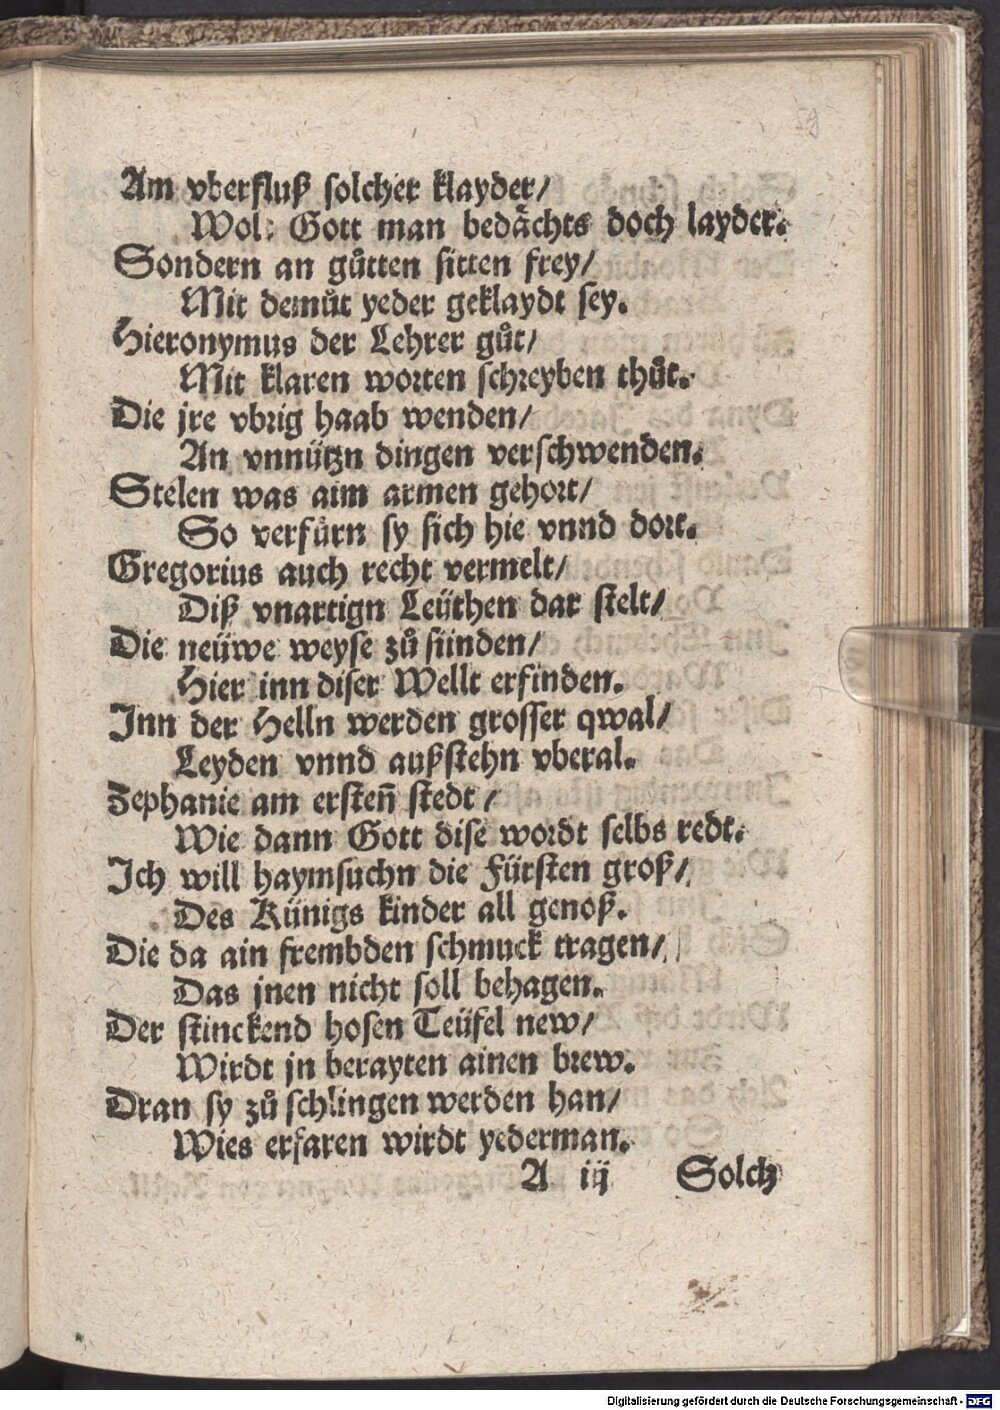 Am vberfluß solcher klayder/
Wolt Gott man bedächts doch layder.
Sondern an gůtten sitten frey/
Mit demůt yeder geklaydt sey.
Hieronymus der Lehrer gůt/
Mit klaren worten schreyben thůt.
Die jre vbrig haab wenden/
An vnnützn dingen verschwenden.
Stelen was aim armen gehort/
So verfürn sy sich hie vnnd dort.
Gregorius auch recht vermelt/
Diß vnartign Leüthen dar stelt/
Die neüwe weyse zů sünden/
Hier inn diser Wellt erfinden.
Inn der Helln werden grosser qwal/
Leyden vnnd außstehn vberal.
Zephanie am ersten̄ stedt /
Wie dann Gott dise wordt selbs redt.
Ich will haymsuchn die Fürsten groß/
Des Künigs kinder all genoß.
Die da ain frembden schmuck tragen/
Das jnen nicht soll behagen.
Der stinckend hosen Teüfel new/
Wirdt jn berayten ainen brew.
Dran sy zů schlingen werden han/
Wies erfaren wirdt yederman.
A iij Solch
Digitalisierung gefördert durch die Deutsche Forschungsgemeinschaft - DFG